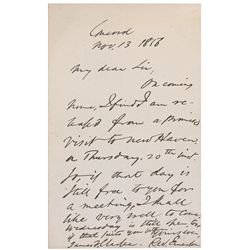 Concord
Nov. 13 1876
My dear Sir,
On coming
home, I find I am re-
from a promised
visit to New Haven
on Thursday, 20th inst
So, if that day is
still free to you for
a meeting, I shall
like very well to come.
Wednesday is
if that suits you